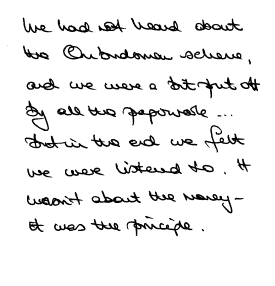 We had not heard about
the Ombudsman scheme,
and we were a bit put off
by all the paperwork ...
but in the end we felt
we were listened to. It
wasn't about the money –
it was the principle.